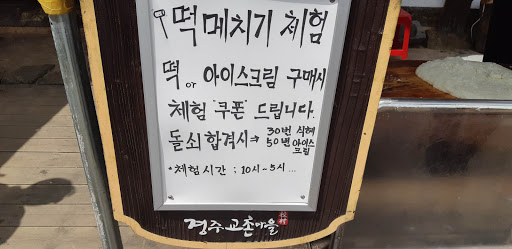 떡메치기 체험
떡 or 아이스크림 구매시
체험 "쿠폰" 드립니다.
돌쇠 합격시⇒ 30번 식혜
50번 아이스
크림
*체험시간 : 10시~5시...
경주 교촌마을
校村